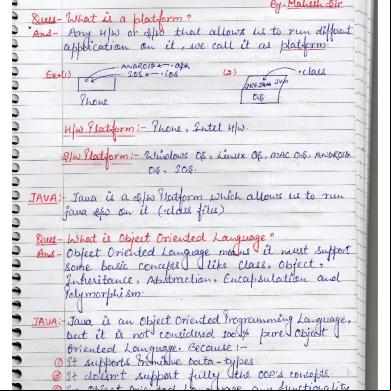 By- Mahesh Sir
Ques- What is a platform?
Ans- Any H/W or S/W that allows us to run different
application on it, we call it as platform.
Ex:- (1) ANDROID ← .apk (2) .class
IOS ← .ios
JRE JAVA JVM
OS
Phone
H/W Platform:- Phone, Intel H/W.
S/W Platform:- Windows OS, Linux OS, MAC OS, ANDROID
OS, IOS.
JAVA:- Java is a S/W Platform which allows us to run
java S/W on it (.class files)
Ques- What is Object Oriented Language?
Ans- Object Oriented Language means it must support
some basic concepts like Class, Object,
Inheritance, Abstraction, Encapsulation and
Polymorphism.
JAVA:- Java is an Object Oriented Programming Language,
but it is not considered 100% pure Object
Oriented Language, Because:-
① It supports Primitive Data-types.
② It doesn't support fully the OOP's concepts.
Object Oriented Language any functionality